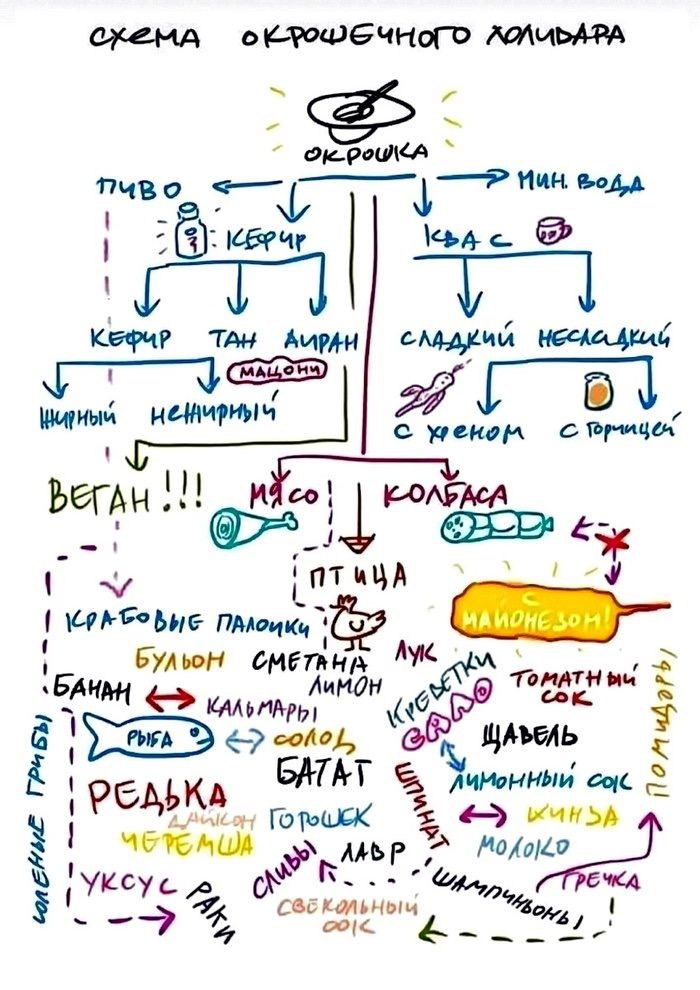 СХЕМА ОКРОШЕЧНОГО ХОЛИВАРА
ОКРОШКА
ПИВО
МИН. ВОДА
КЕФИР
КВАС
КЕФИР
ТАН
АЙРАН
СЛАДКИЙ
НЕСЛАДКИЙ
МАЦОНИ
ЖИРНЫЙ
НЕЖИРНЫЙ
С ХРЕНОМ
С ГОРЧИЦЕЙ
ВЕГАН!!!
МЯСО
КОЛБАСА
ПТИЦА
С
МАЙОНЕЗОМ!
КРАБОВЫЕ ПАЛОЧКИ
БУЛЬОН
СМЕТАНА
ЛУК
КРЕВЕТКИ
ТОМАТНЫЙ
СОК
ПОМИДОРЫ
БАНАН
ЛИМОН
КАЛЬМАРЫ
САЛО
ЩАВЕЛЬ
РЫБА
СОЛОД
БАТАТ
ЛИМОННЫЙ СОК
СОЛЕНЫЕ ГРИБЫ
РЕДЬКА
ДАЙКОН
ГОРОШЕК
ШПИНАТ
КИНЗА
ЧЕРЕМША
ЛАВР
МОЛОКО
УКСУС
РАКИ
СЛИВЫ
ШАМПИНЬОНЫ
ГРЕЧКА
СВЕКОЛЬНЫЙ
СОК